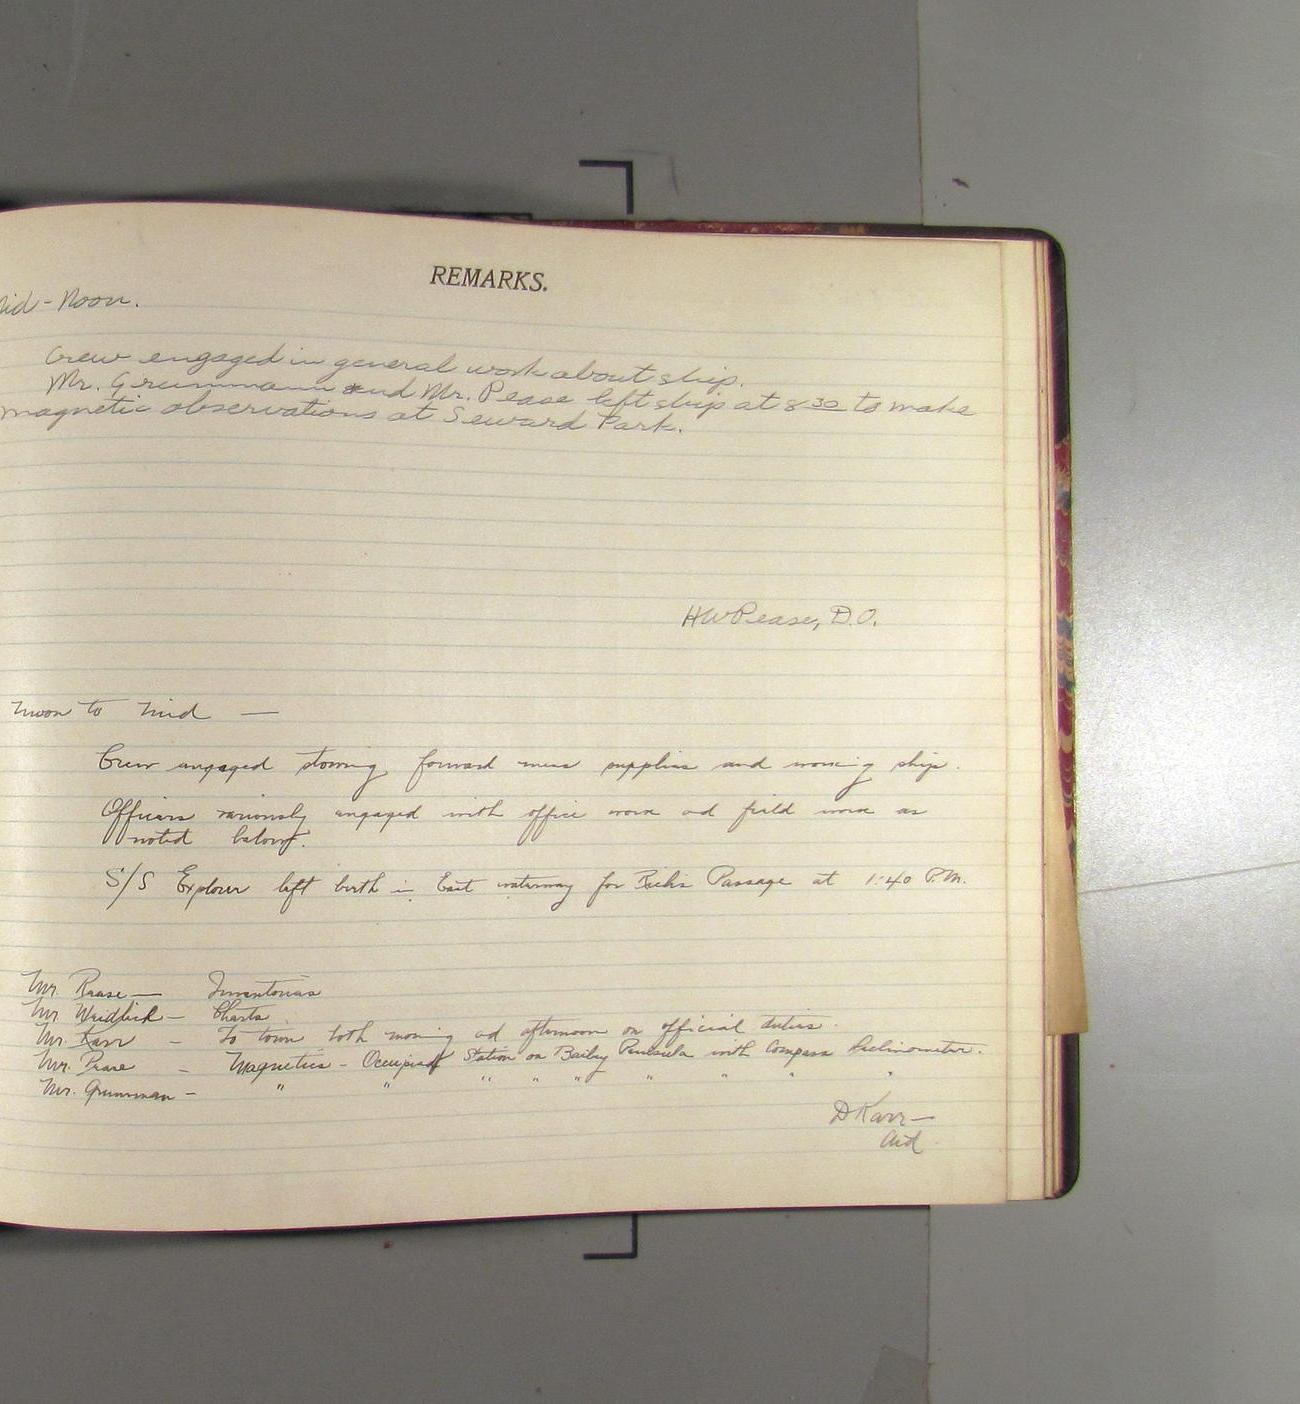 REMARKS.
Mid - Noon.
Crew engaged in general work about ship.
Mr. Grummann and Mr. Pease left ship at 8 30 to make
magnetic observations at Seward Park.
HWPease, D.O.
Noon to Mid —
Crew engaged stowing forward mess supplies and working ship.
Officers variously engaged with office work ad field work as
noted below.
S/S Explorer left berth in East waterway for Passage at 1:40 P.M.
Mr. — Inventories
Mr. Weidlich — Charts
Mr. Karr — To town both morning ad afternoon on official duties.
Mr. Pease — Magnetics - Occupied Station on Bailey Peninsula with Compass Declinometer.
Mr. Grumman — " " " " " " " " " "
D Karr —
Aid